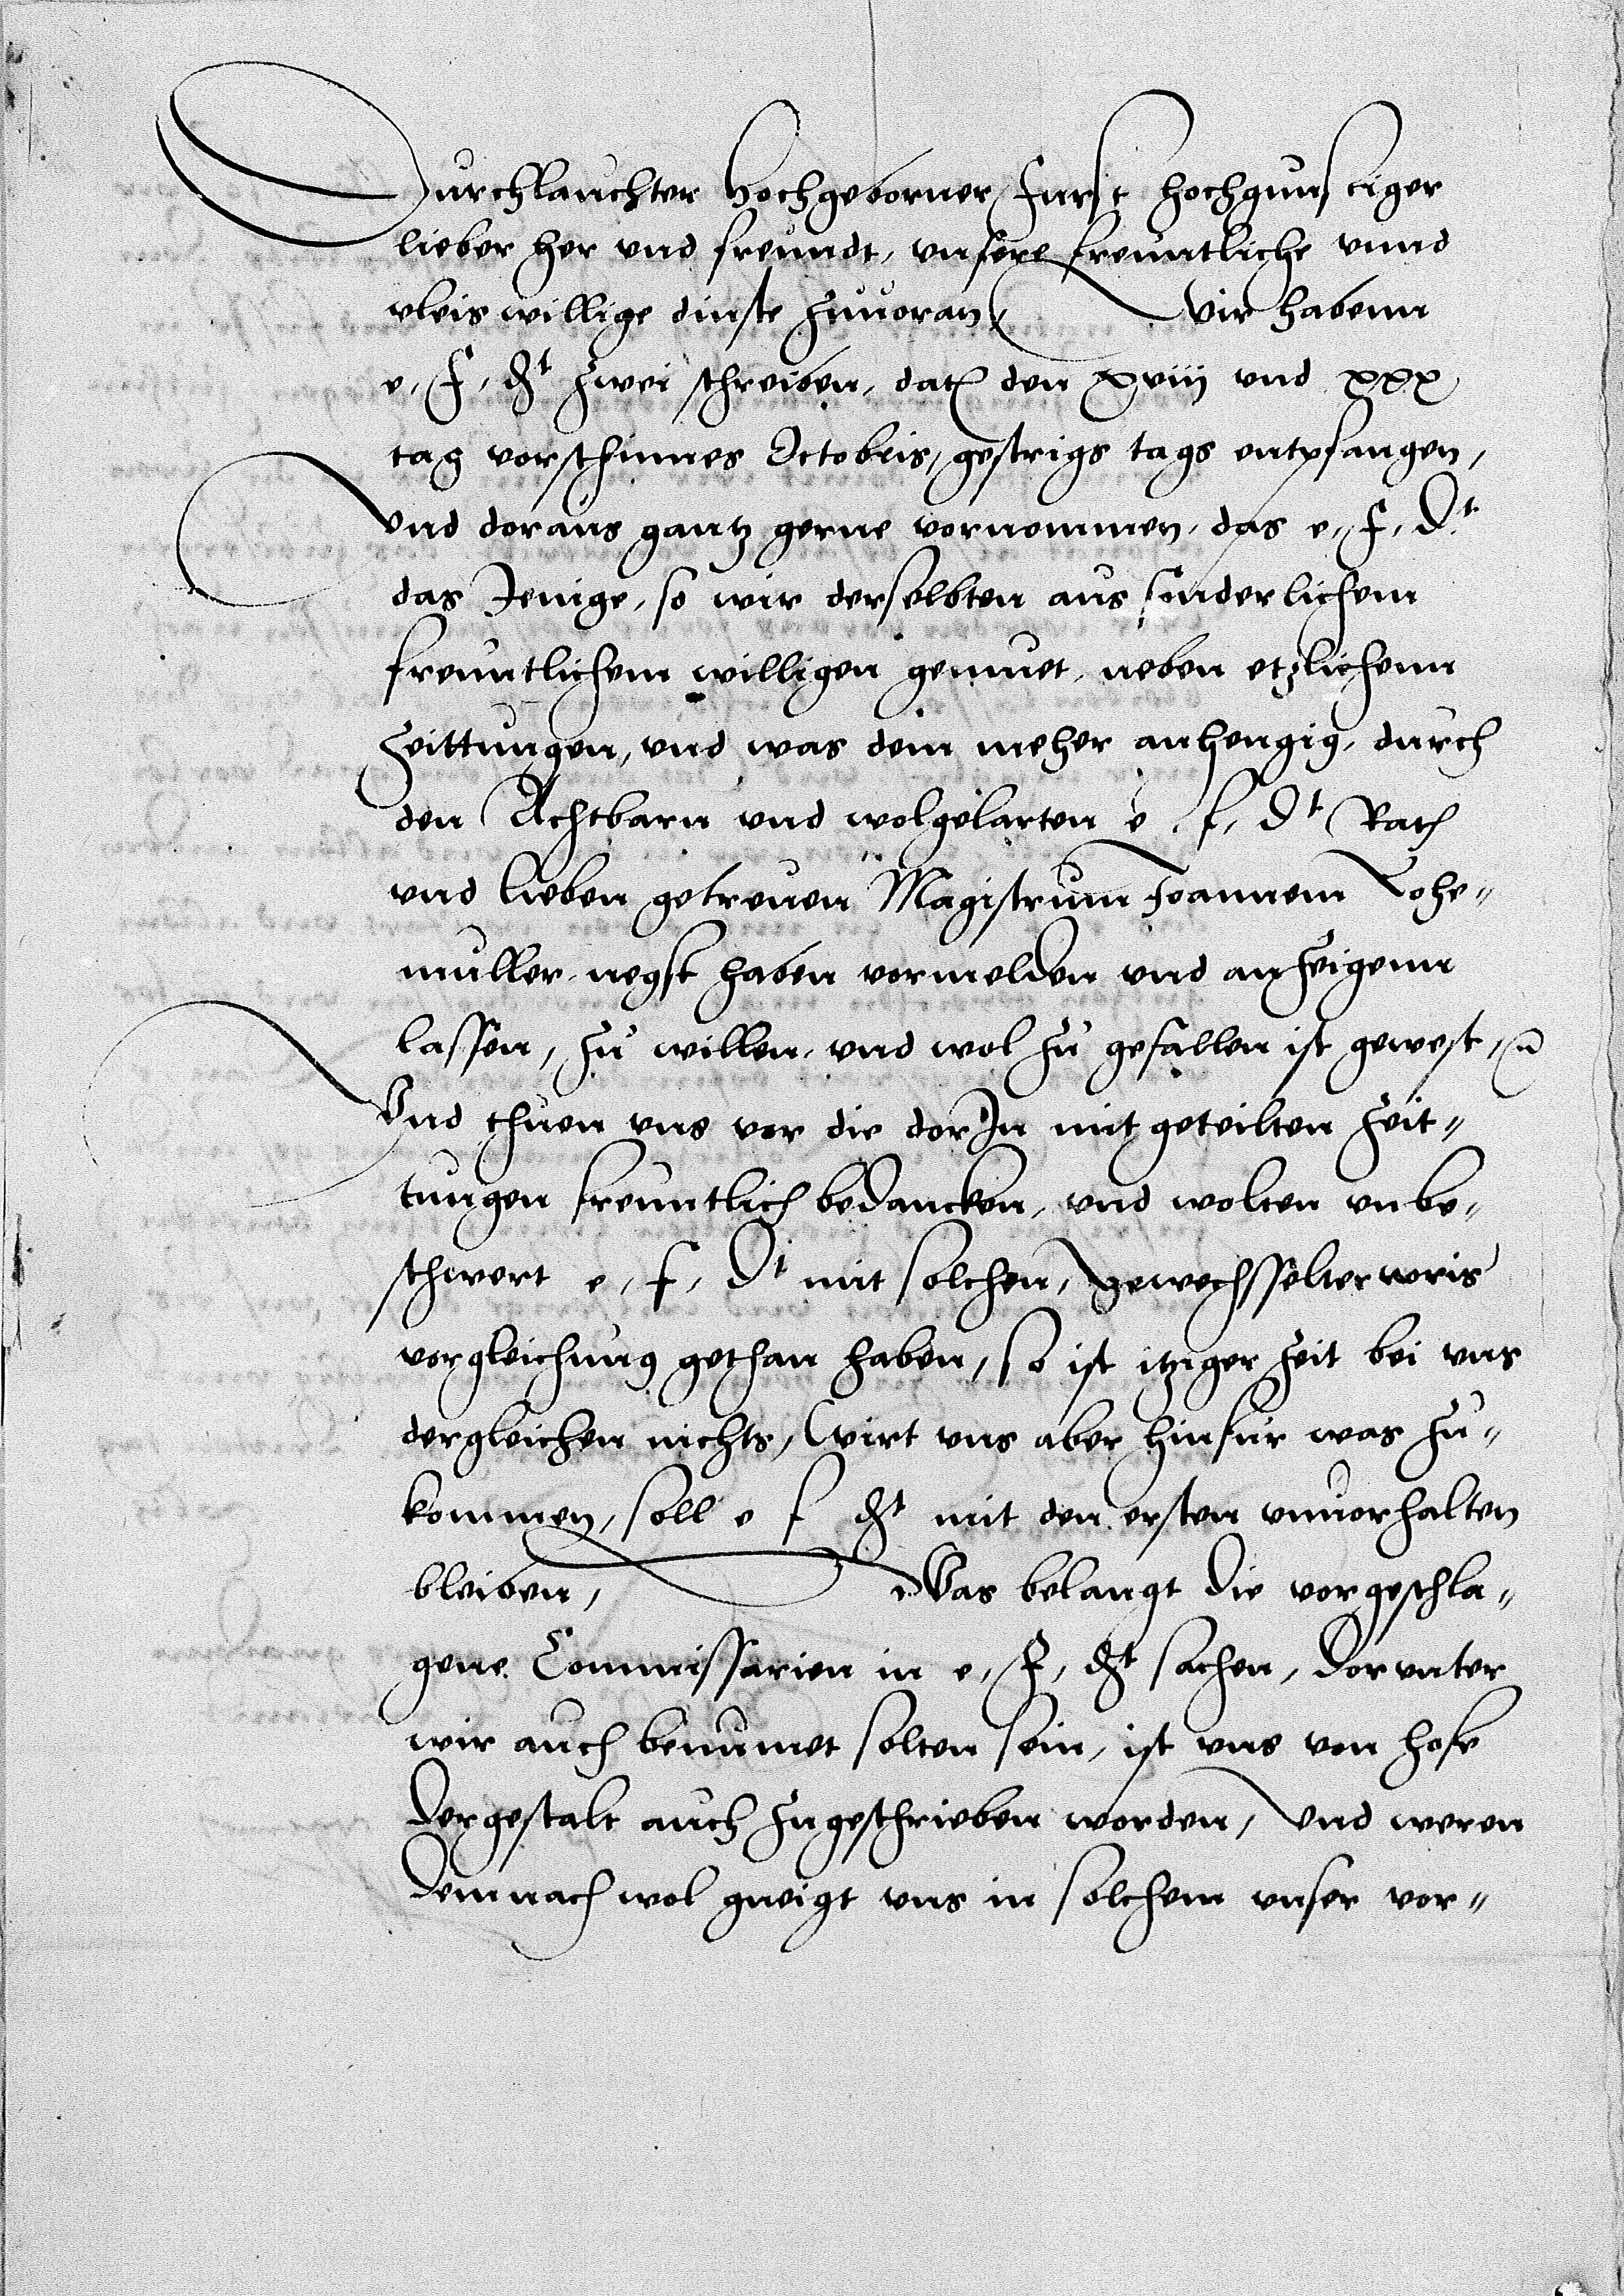 Durchlauchter Hochgeborner Furst hochgunstiger
lieber her und freundt, unsere freuntliche unnd
vleis willige dinste zuuoran, Wir habenn
e, f, dt zwei schreiben, dat(h) den xviij und xxx
tag vorschinnes Octobris, gestrigs tags entpfangen,
Und doraus gantz gerne vornommen, das e, f, Dt
das Jenige, so wir derselbten aus sunderlichem
freuntlichem willigen gemuet, neben etzlichenn
Zeittungen, und was dem meher anhengig, durch
den Achtbarn und wolgelarten e. f. Dt Rath
und lieben getreuen Magistrum Joannem Lohe„
muller, negst haben vormelden und anzeigenn
lassen, zu willen, und wol zu gefallen ist gewest,
Und thuen uns vor die dorJn mit geteilten zeit„
tungen freuntlich bedancken, und wolten unbe„
schwert e, f, Dt mit solchen, gewechsselter weis
vorgleichung gethan haben, so ist itziger zeit bei uns
dergleichen nichts, Wirt uns aber hinfur was zu„
kommen, soll e f dt mit den ersten unuorhalten
bleiben, Was belangt die vorgeschla„
gene Commissarien in e, f, dt sachen, dorunter
wir auch benumet solten sein, ist uns von hofe
dergestalt auch zugeschrieben worden, Und weren
demnach wol gneigt uns in solchem unser vor„